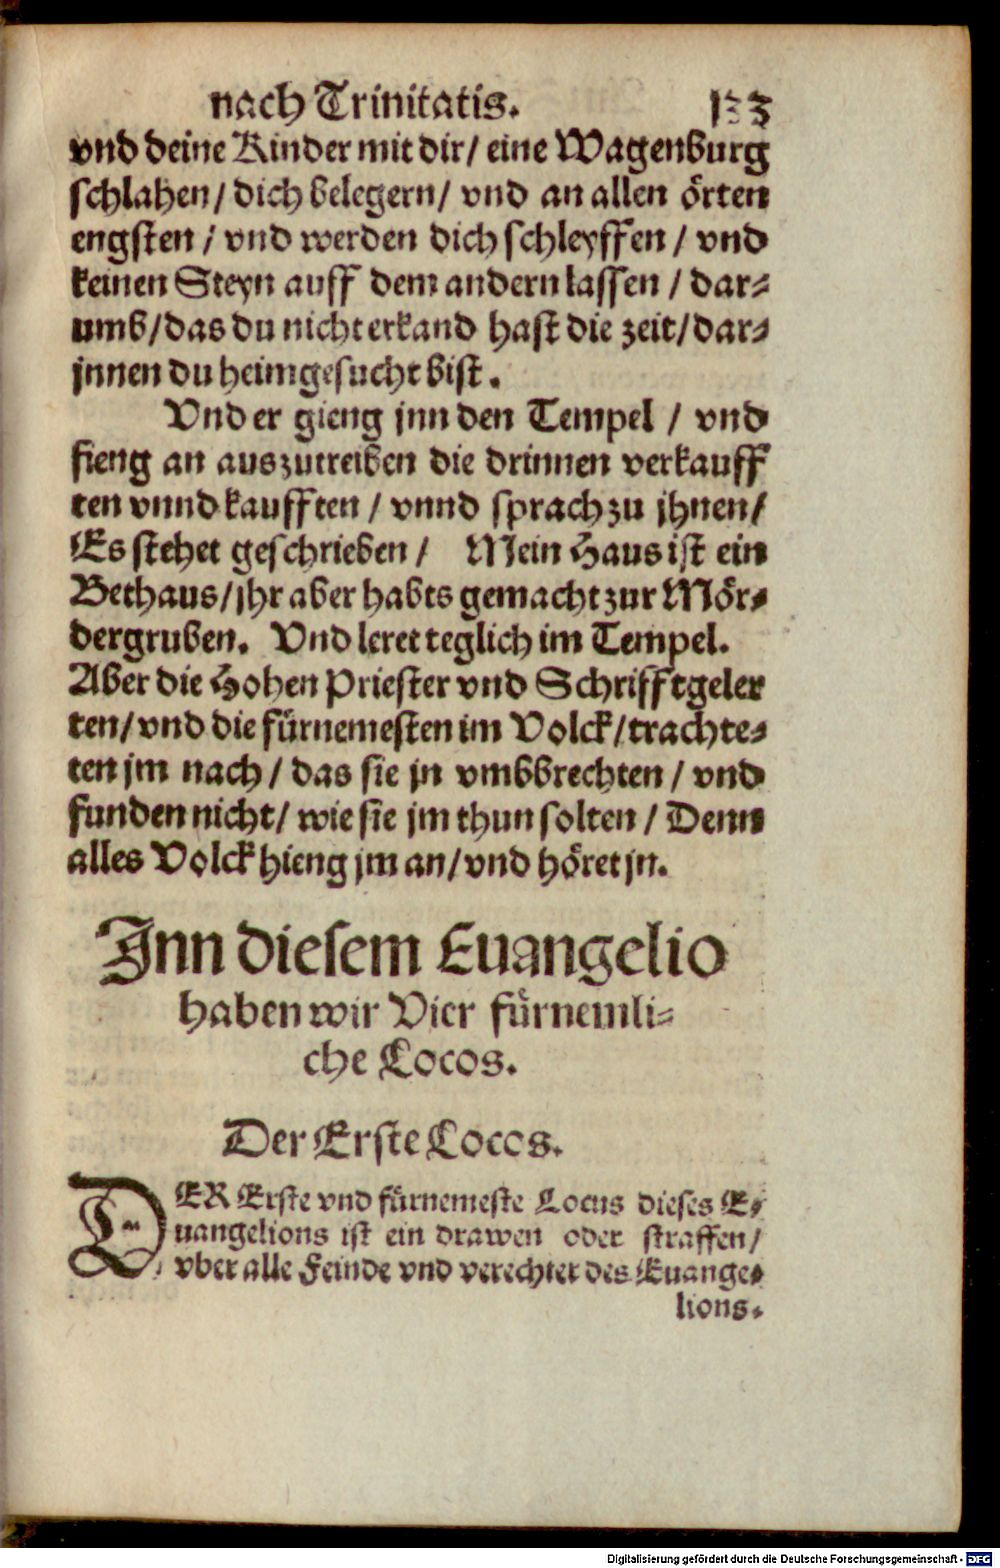 nach Trinitatis. 133
vnd deine Kinder mit dir/ eine Wagenburg
schlahen/ dich belegern/ vnd an allen örten
engsten/ vnd werden dich schleyffen/ vnd
keinen Steyn auff dem andern lassen/ dar⸗
umb/ das du nicht erkand hast die zeit/ dar⸗
jnnen du heimgesucht bist.
Vnd er gieng jnn den Tempel/ vnd
fieng an auszutreiben die drinnen verkauff
ten vnnd kaufften/ vnnd sprach zu jhnen/
Es stehet geschrieben/ Mein Haus ist ein
Bethaus/ jhr aber habts gemacht zur Mör⸗
dergruben. Vnd leret teglich im Tempel.
Aber die Hohen Priester vnd Schrifftgeler
ten/ vnd die fürnemesten im Volck/ trachte⸗
ten jm nach/ das sie jn vmbbrechten/ vnd
funden nicht/ wie sie jm thun solten/ Denn
alles Volck hieng jm an/ vnd höret jn.
Jnn diesem Euangelio
haben wir Vier fürnemli⸗
che Locos.
Der Erste Locos.
DER Erste vnd fürnemeste Locus dieses E⸗
uangelions ist ein drawen oder straffen/
vber alle Feinde vnd verechter des Euange⸗
lions.
Digitalisierung gefördert durch die Deutsche Forschungsgemeinschaft - DFG